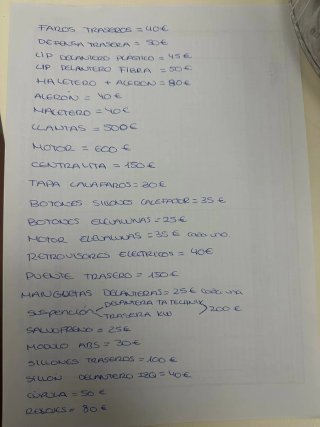 FAROS TRASEROS = 40€
DEFENSA TRASERA = 50€
LIP DELANTERO PLASTICO = 45€
LIP DELANTERO FIBRA = 50€
MALETERO + ALERON = 80€
ALERÓN = 40€
MALETERO = 40€
LLANTAS = 500€
MOTOR = 600€
CENTRALITA = 150€
TAPA CALAFAROS = 30€
BOTONES SILLONES CALEFATOR = 35€
BOTONES ELEVALUNAS = 25€
MOTOR ELEVALUNAS = 35€ cada uno
RETROVISORES ELECTRICOS = 40€
PUENTE TRASERO = 150€
MANGUETAS DELANTERAS = 25€ cada una
SUSPENCION DELANTERA TA TECHNIX TRASERA KW 200€
SALVOFRENO = 25€
MODULO ABS = 30€
SILLONES TRASEROS = 100€
SILLON DELANTERO IZQ = 40€
CÚPULA = 50€
RELOJES = 80€